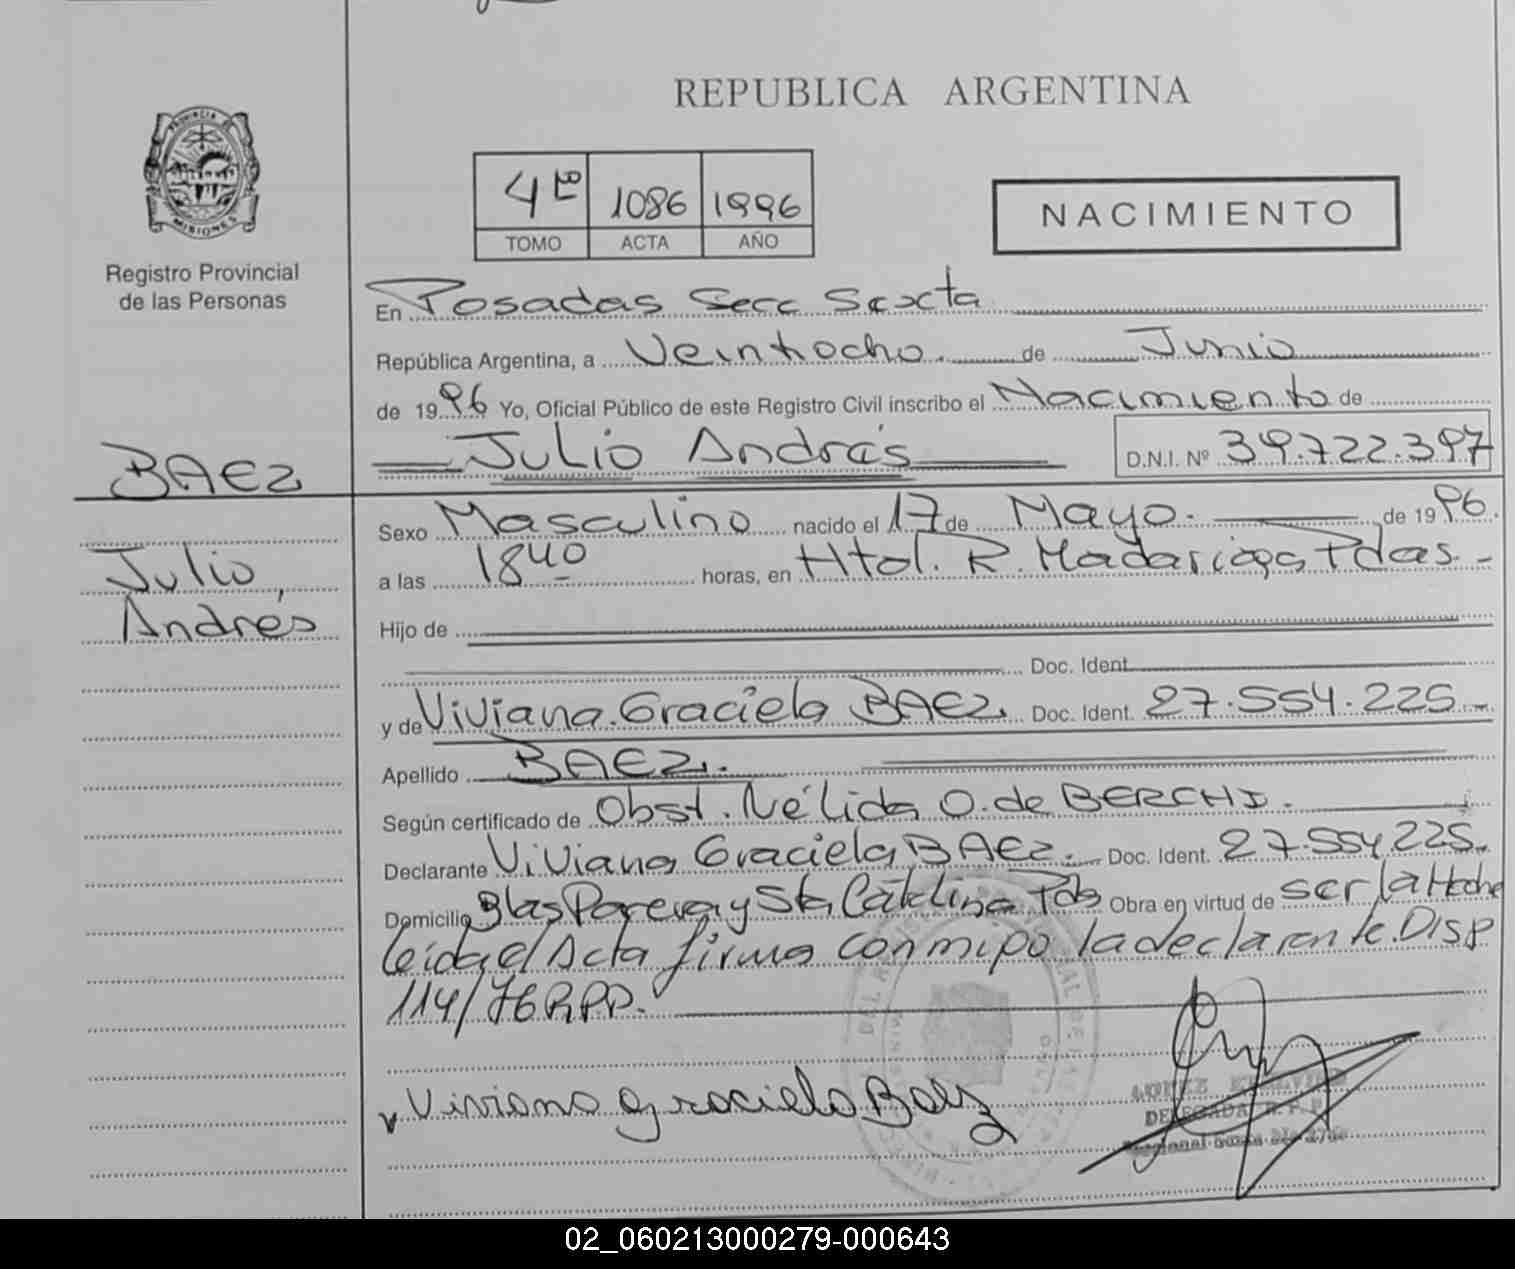 REPUBLICA ARGENTINA
PROVINCIA DE
MISIONES
Registro Provincial
de las Personas
4to 1086 1996
TOMO ACTA AÑO
NACIMIENTO
En Posadas Secc Sexta
República Argentina, a Veintiocho de Junio
de 1996 Yo, Oficial Público de este Registro Civil inscribo el Nacimiento de
BAEZ
Julio Andrés D.N.I. Nº 39.722.397
Julio
Andrés
Sexo Masculino nacido el 17 de Mayo. de 1996.
a las 1840 horas, en Htal. R. Madariaga Pdas.-
Hijo de
Doc. Ident.
y de Viviana Graciela BAEZ Doc. Ident. 27.554.225.-
Apellido BAEZ.
Según certificado de Obst. Nélida O. de BERCHI.
Declarante Viviana Graciela BAEZ. Doc. Ident. 27.554.225.
Domicilio Blas Parera y Sta Catalina Pdas Obra en virtud de ser la
leída el Acta firma conmigo la declarante. Disp
114/76 R.P.P.
Viviana Graciela Baez
DELEGADA R. P. P.
02_060213000279-000643